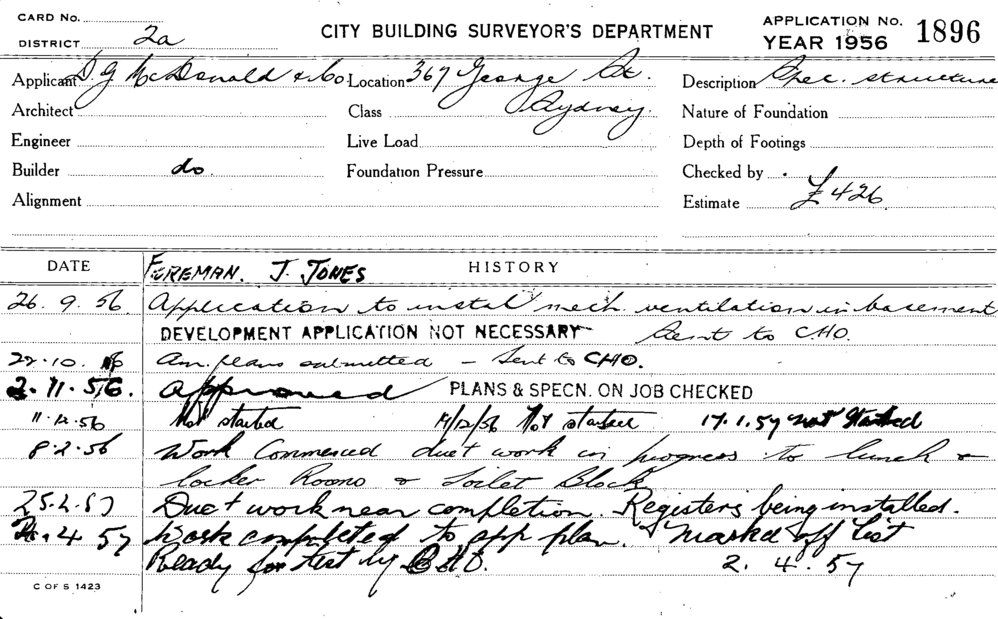 CARD No.
DISTRICT 2a
CITY BUILDING SURVEYOR'S DEPARTMENT
APPLICATION No. 1896
YEAR 1956
Applicant D. G McDonald & Co. Location 367 George St. Description Spec. structure
Architect Class Sydney. Nature of Foundation
Engineer Live Load Depth of Footings
Builder do. Foundation Pressure Checked by
Alignment Estimate £426
DATE FOREMAN. J. JONES HISTORY
26. 9. 56 Application to instal mech. ventilation in basement
DEVELOPMENT APPLICATION NOT NECESSARY Sent to C.H.O.
22.10. 56 Am. plans submitted - Sent to CHO.
2. 11. 56. Approved PLANS & SPECN. ON JOB CHECKED
11.12.56 Not started /12/56 Not started 17.1.57 not Started
8.2.56 Work Commenced duct work in progress to lunch &
locker Rooms & Toilet Block
25.2.57 Duct work near completion. Registers being installed.
4 57 Work completed to app plan. Marked off List
Ready for test by 2. 4. 57
C OF S 1423